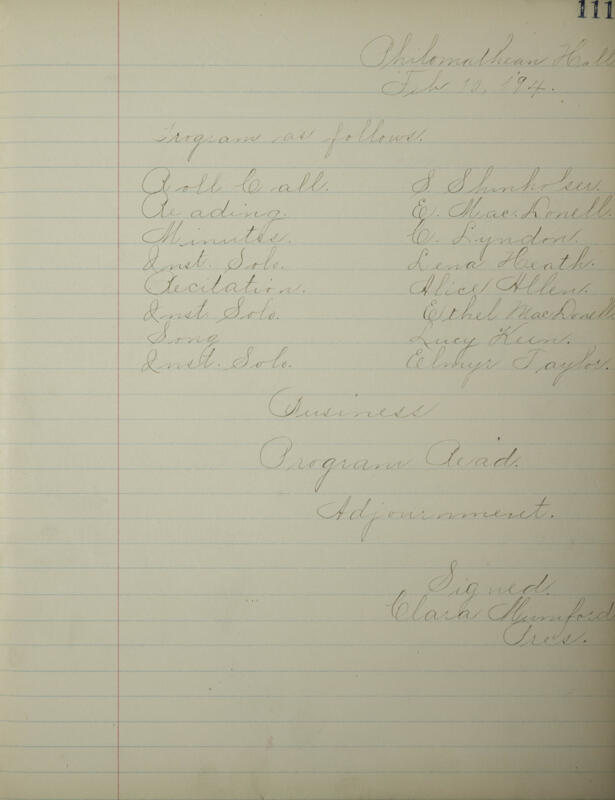 111
Philomathean Hall
Feb 12, '94.
Program as follows.
Roll Call. S Shinholser.
Reading. E. MacDonell.
Minutes. C. Lyndon.
Inst. Solo. Lena Heath.
Recitation. Alice Allen.
Inst Solo. Ethel MacDonell
Song Lucy Keen.
Inst. Solo. Elmyr Taylor.
Business
Program Read.
Adjournment.
Signed.
Clara Mumford
Pres.